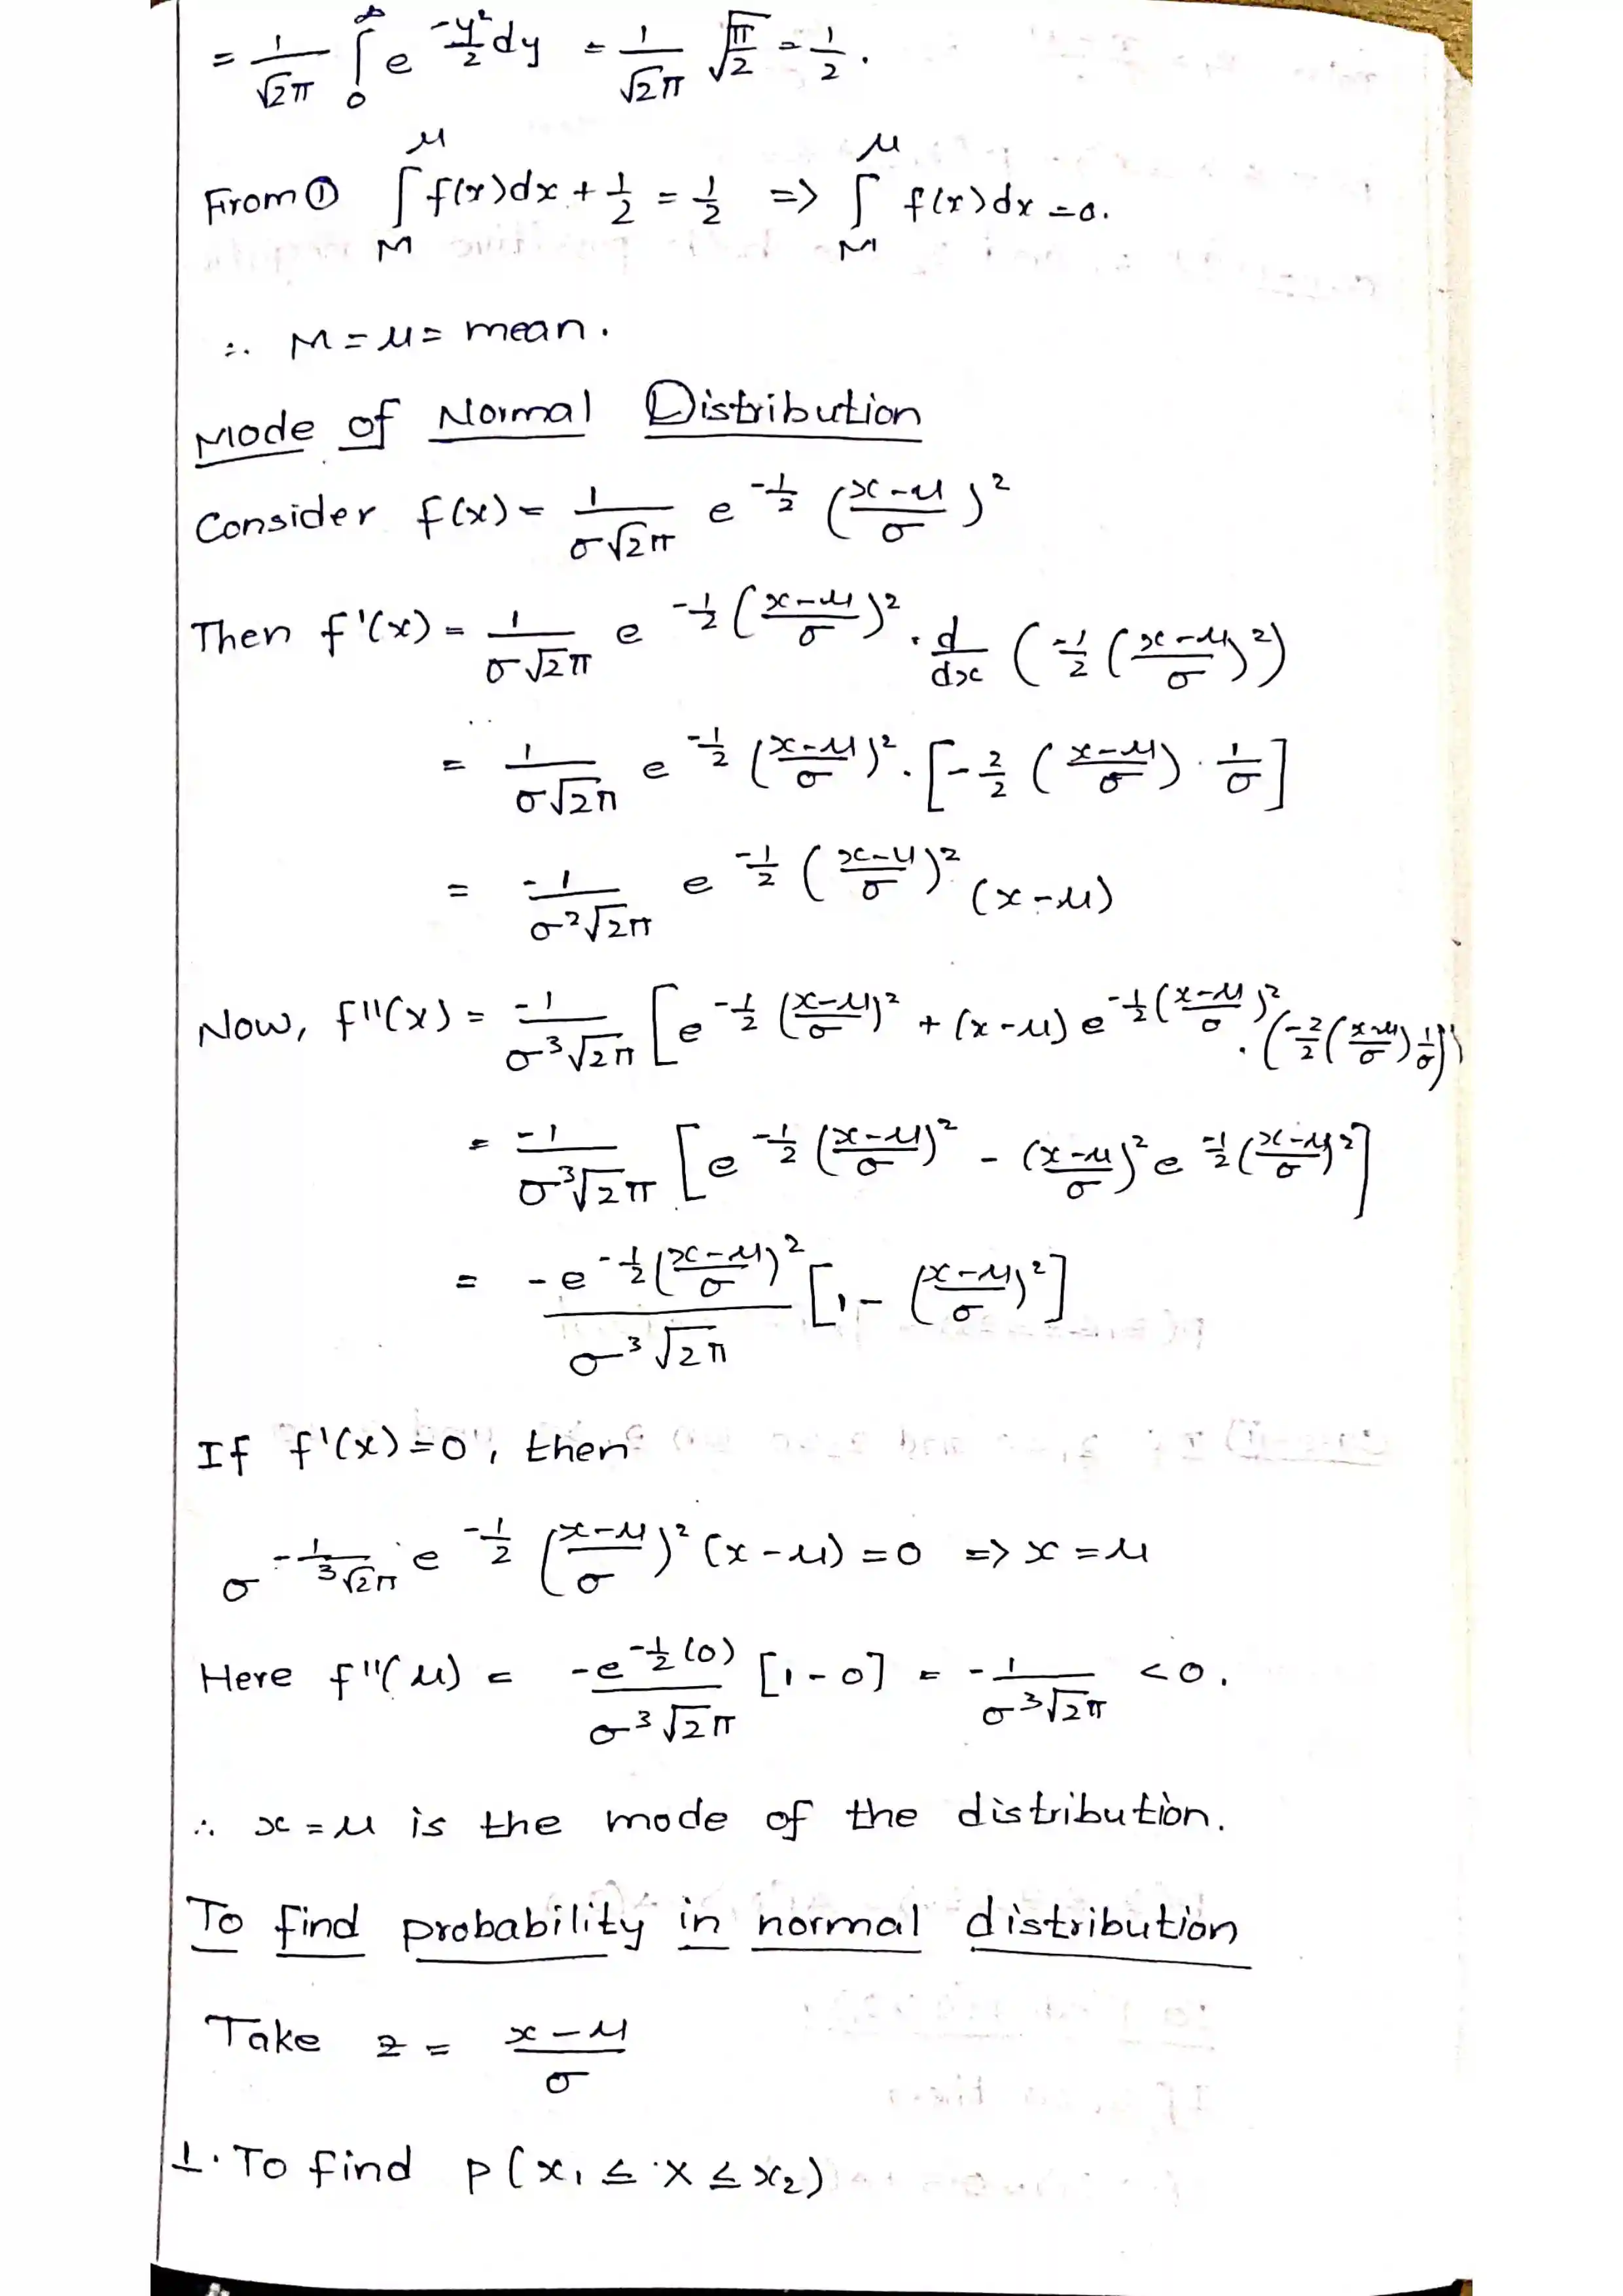 = 1/√2π ∫₀^∞ e^(-y²/2) dy = 1/√2π √π/√2 = 1/2.
From ① ∫_M^μ f(x)dx + 1/2 = 1/2 => ∫_M^μ f(x)dx = 0.
∴ M = μ = mean.
Mode of Normal Distribution
Consider f(x) = 1/(σ√2π) e^(-1/2 ((x-μ)/σ)²)
Then f'(x) = 1/(σ√2π) e^(-1/2 ((x-μ)/σ)²) . d/dx (-1/2 ((x-μ)/σ)²)
= 1/(σ√2π) e^(-1/2 ((x-μ)/σ)²) . [-2/2 ((x-μ)/σ) . 1/σ]
= -1/(σ²√2π) e^(-1/2 ((x-μ)/σ)²) (x-μ)
Now, f''(x) = -1/(σ³√2π) [e^(-1/2 ((x-μ)/σ)²) + (x-μ) e^(-1/2 ((x-μ)/σ)²) . (-2/2 ((x-μ)/σ) 1/σ)]
= -1/(σ³√2π) [e^(-1/2 ((x-μ)/σ)²) - ((x-μ)/σ)² e^(-1/2 ((x-μ)/σ)²)]
= -e^(-1/2 ((x-μ)/σ)²)/(σ³√2π) [1 - ((x-μ)/σ)²]
If f'(x) = 0, then
σ -1/(3√2π) e^(-1/2 ((x-μ)/σ)²) (x-μ) = 0 => x = μ
Here f''(μ) = -e^(-1/2 (0))/(σ³√2π) [1-0] = -1/(σ³√2π) < 0.
∴ x = μ is the mode of the distribution.
To find probability in normal distribution
Take z = (x-μ)/σ
1. To find P(x₁ ≤ X ≤ x₂)